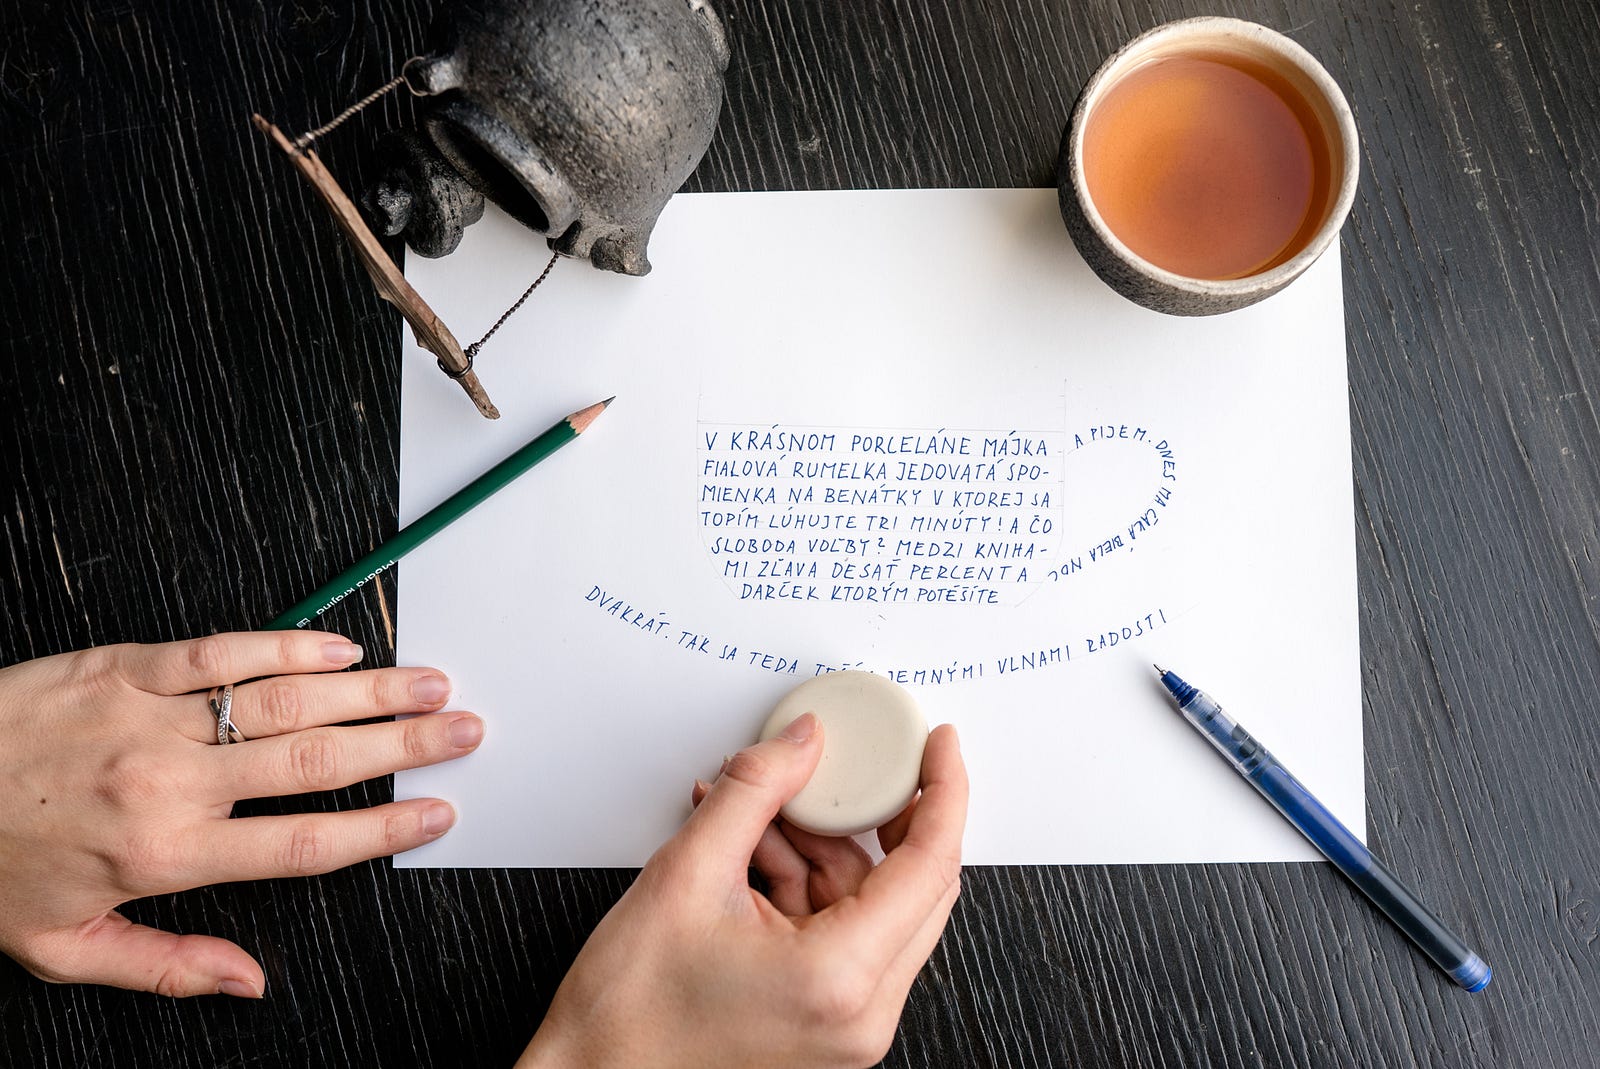 V KRÁSNOM PORCELÁNE MÁJKA
FIALOVÁ RUMELKA JEDOVATÁ SPO-
MIENKA NA BENÁTKY V KTOREJ SA
TOPÍM LÚHUJTE TRI MINÚTY! A ČO
SLOBODA VOĽBY? MEDZI KNIHA-
MI ZĽAVA DESAŤ PERCENT A
DARČEK KTORÝM POTEŠÍTE
A PIJEM. DNES MA ČAKÁ BIELA NOC
DVAKRÁT. TAK SA TEDA JEMNÝMI VLNAMI RADOSTI
Modrá krajina